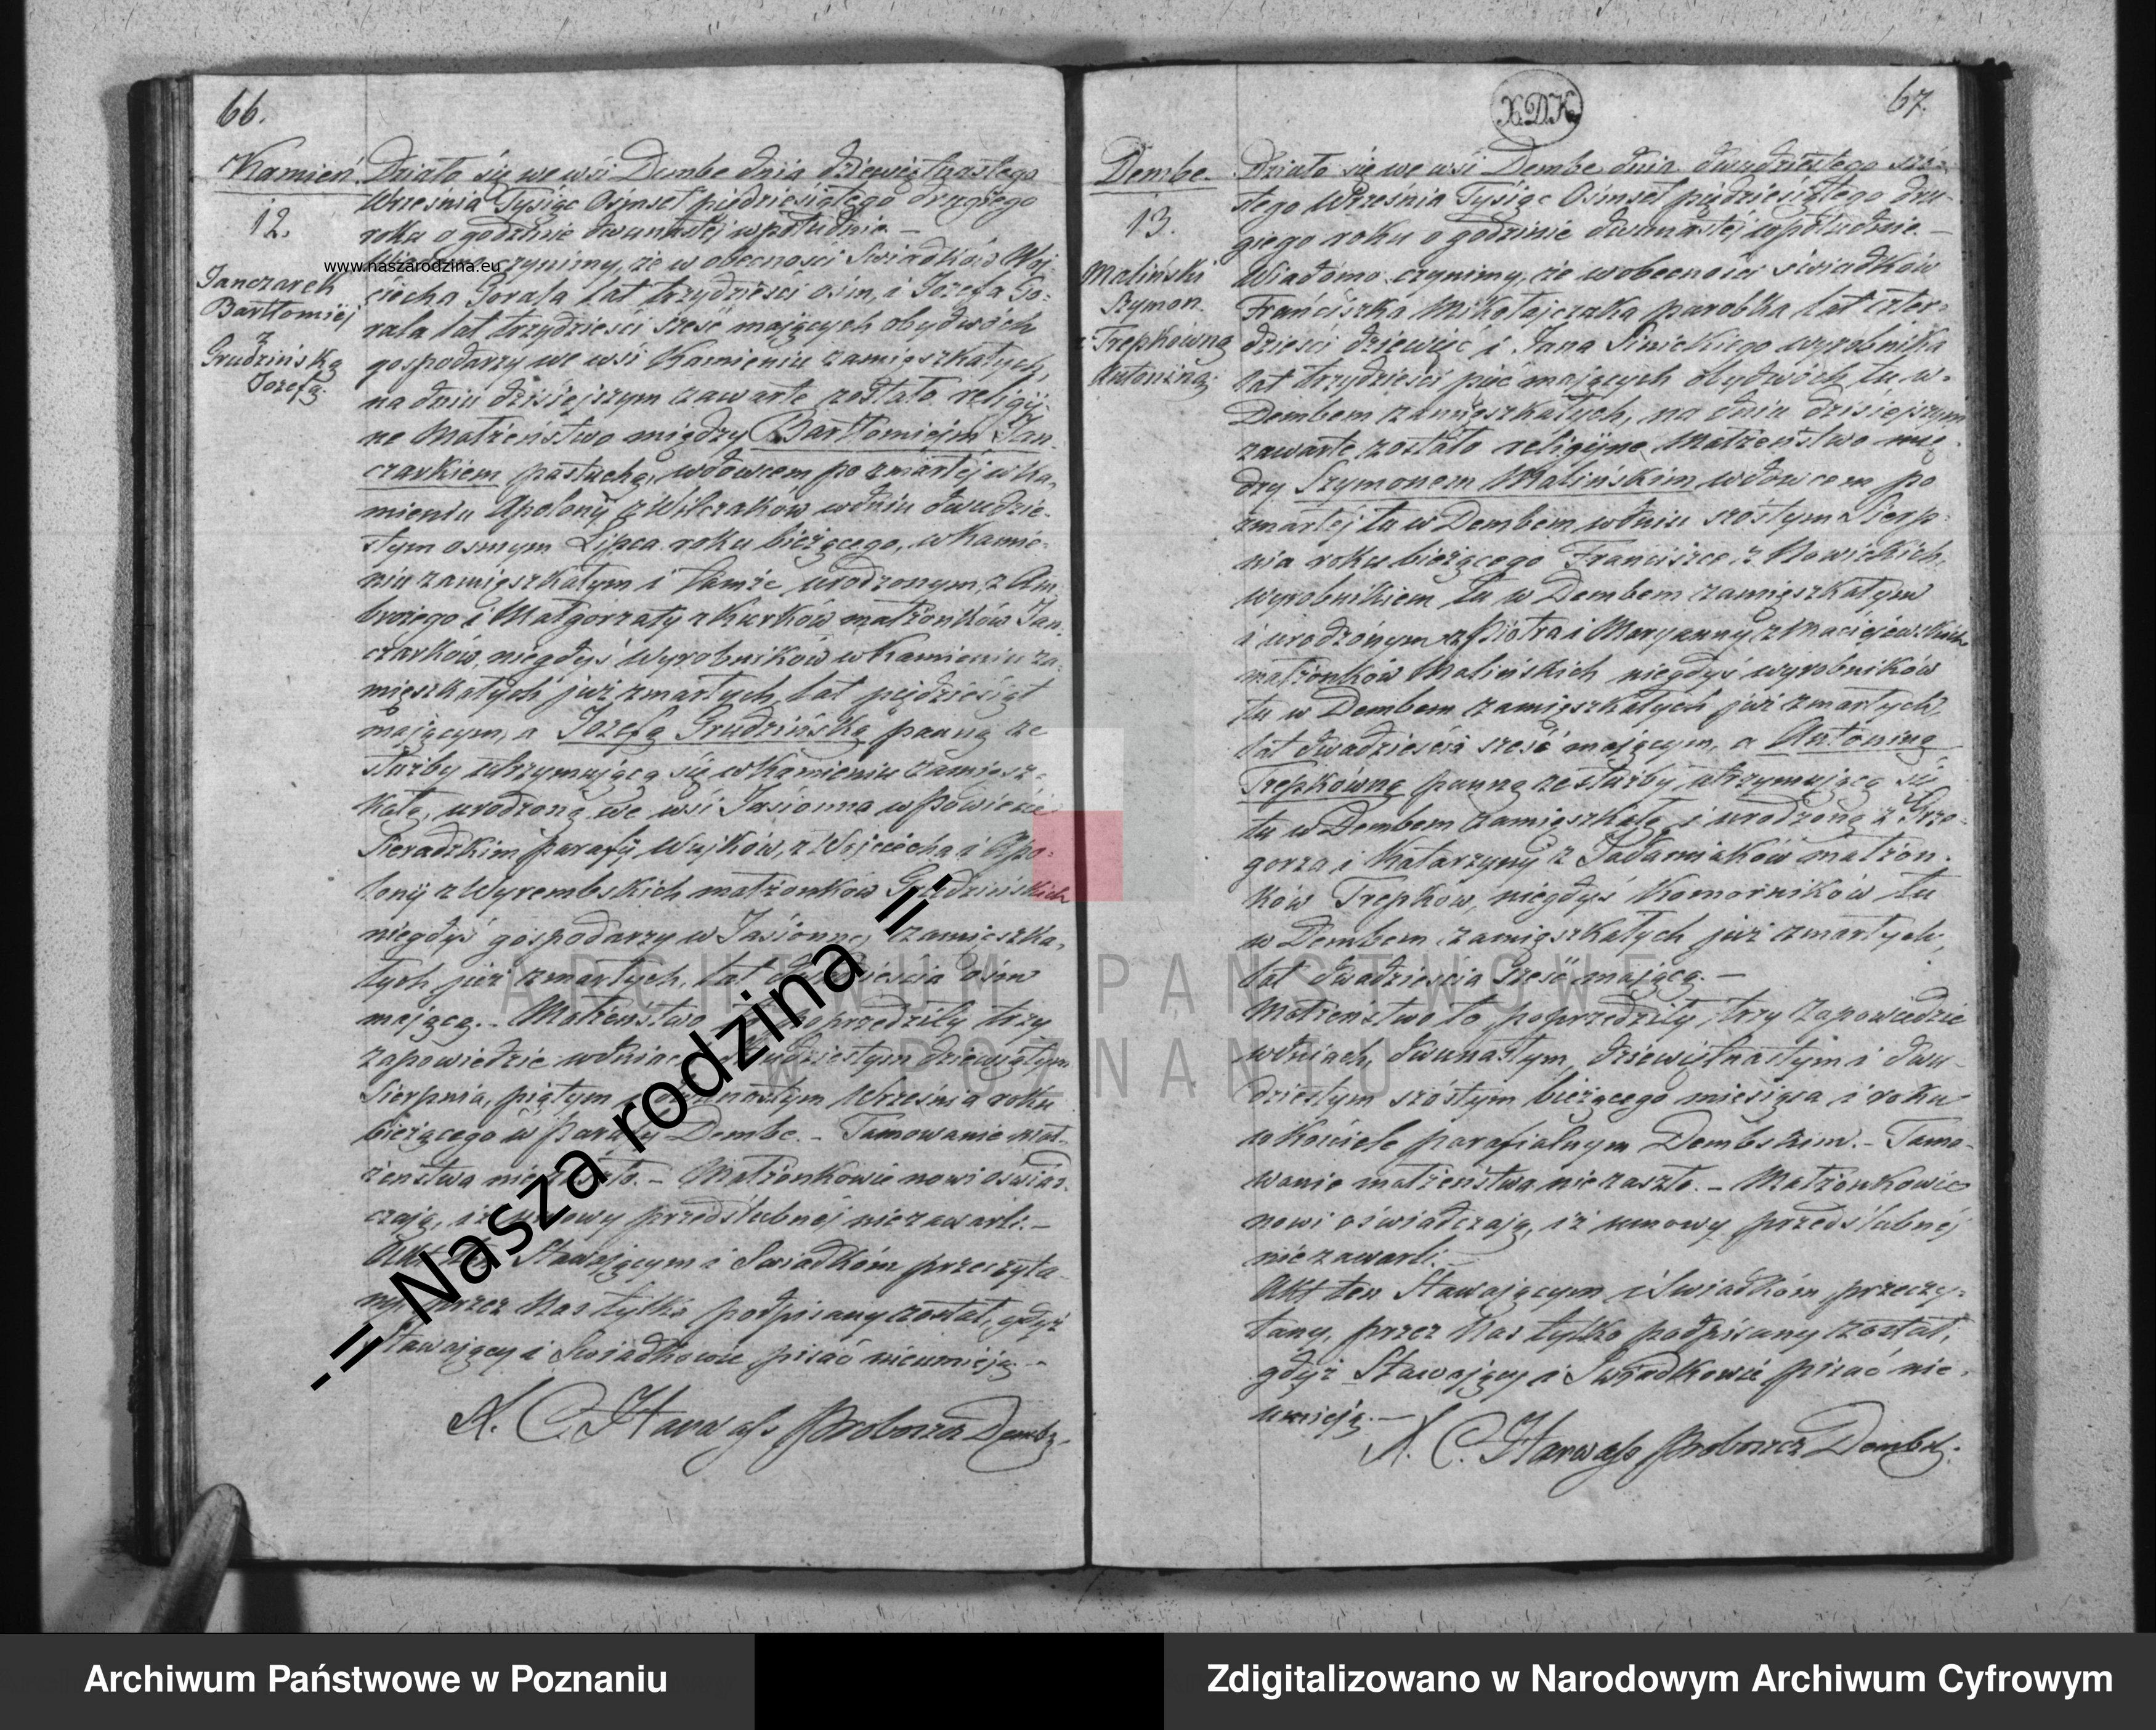 66.
Kamień.
12.
Janczarek
Bartłomiej
z
Grudzińską
Józefą.
Działo się we wsi Dembe dnia dziewiętnastego
Września Tysiąc Ośmset piędziesiątego drugiego
roku o godzinie dwunastej w południe. —
Wiadomo czynimy, że w obecności Świadków Woj-
ciecha Gorala lat trzydzieści ośm, i Józefa Go-
rala lat trzydzieści sześć mających obydwóch
gospodarzy we wsi Kamieniu zamięszkałych,
na dniu dzisiejszym zawarte zostało religij-
ne Małżeństwo między Bartłomiejem Jan-
czarkiem pastuchą, wdowcem po zmarłej w Ka-
mieniu Apolonii z Wilczaków w dniu dwudzie-
stym osmym Lipca roku bieżącego, w Kamie-
niu zamięszkałym i tamże urodzonym, z Am-
brożego i Małgorzaty z Kurków małżonków Jan-
czarków, niegdyś Wyrobników w Kamieniu za-
mięszkałych już zmarłych, lat piędziesiąt
mającym, a Józefą Grudzińską panną ze
służby utrzymującą się w Kamieniu zamiesz-
kałą, urodzoną we wsi Jasionna w Powiecie
Sieradzkim parafii Wojków, z Wojciecha i Apo-
lonii z Wyrembskich małżonków Grudzińskich
niegdyś gospodarzy w Jasionny zamięszka-
łych już zmarłych, lat dwadzieścia ośm
mającą. — Małżeństwo to poprzedziły trzy
zapowiedzie w dniach dwudziestym dziewiątym
Sierpnia, piątym i dwunastym Września roku
bieżącego w Parafii Dembe. — Tamowanie mał-
żeństwa nie zaszło. — Małżonkowie nowi oświad-
czają, iż umowy przedślubnej nie zawarli. —
Akt ten Stawającym i Świadkom przeczyta-
ny, przez Nas tylko podpisany został, gdyż
Stawający i Świadkowie pisać nieumieją. —
X. C. Harwass Proboszcz Dembs.
XDK
67.
Dembe.
13.
Maliński
Szymon
z Trepkówną
Antoniną.
Działo się we wsi Dembe dnia dwudziestego szó-
stego Września Tysiąc Ośmset piędziesiątego dru-
giego roku o godzinie dwunastej w południe. —
Wiadomo czynimy, że w obecności świadków
Franciszka Mikołajczaka parobka lat czter-
dzieści dziewięć i Jana Sinickiego wyrobnika
lat trzydzieści pięć mających obydwóch tu w
Dembem zamięszkałych, na dniu dzisiejszym
zawarte zostało religijne Małżeństwo mię-
dzy Szymonem Malińskim wdowcem po
zmarłej tu w Dembem w dniu szóstym Sierp-
nia roku bieżącego Franciszce z Nowickich,
wyrobnikiem tu w Dembem zamięszkałym
i urodzonym z Piotra i Maryanny z Maciejewskich
małżonków Malińskich niegdyś wyrobników
tu w Dembem zamięszkałych już zmarłych,
lat dwadzieścia sześć mającym, a Antoniną
Trepkówną panną ze służby utrzymującą się
tu w Dembem zamięszkałą i urodzoną z Grze-
gorza i Katarzyny z Jadamiaków małżon-
ków Trepków, niegdyś Komorników tu
w Dembem zamięszkałych już zmarłych,
lat dwadzieścia sześć mającą. —
Małżeństwo to poprzedziły trzy Zapowiedzie
w dniach, dwunastym, dziewiętnastym i dwu-
dziestym szóstym bieżącego miesiąca i roku
w Kościele parafialnym Dembskim. — Tamo-
wanie małżeństwa nie zaszło. — Małżonkowie
nowi oświadczają, iż umowy przedślubnej
nie zawarli. —
Akt ten Stawającym i Świadkom przeczy-
tany, przez Nas tylko podpisany został,
gdyż Stawający i Świadkowie pisać nie
umieją. —
X. C. Harwass Proboszcz Dembs.
www.naszarodzina.eu
-= Nasza rodzina =-
ARCHIWUM PAŃSTWOWE
W POZNANIU
Archiwum Państwowe w Poznaniu
Zdigitalizowano w Narodowym Archiwum Cyfrowym